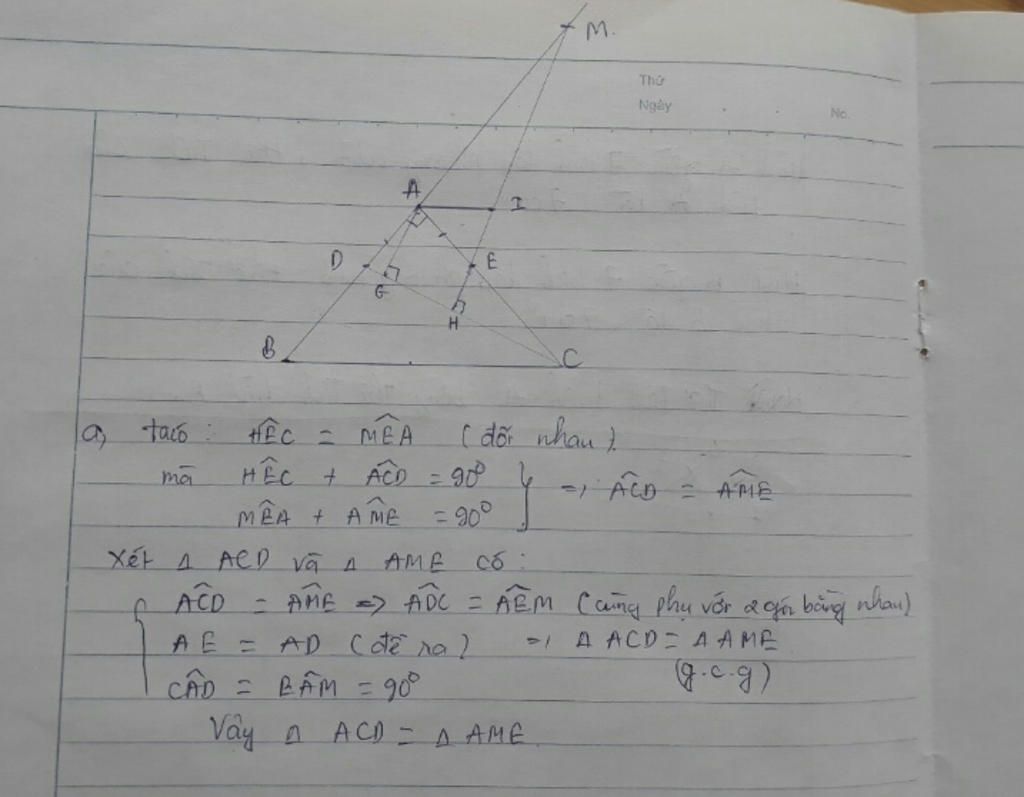 M.
Thứ
Ngày
No.
A
I
D
E
G
H
B
C
a, ta có : HÊC = MÊA (đối nhau).
mà HÊC + AĈD = 90⁰
MÊA + AM̂E = 90⁰ } => AĈD = AM̂E
Xét Δ ACD và Δ AME có :
{ AĈD = AM̂E => AD̂C = AÊM (cùng phụ với 2 góc bằng nhau)
AE = AD (đề ra) => Δ ACD = Δ AME
CÂD = EÂM = 90⁰ (g.c.g)
Vậy Δ ACD = Δ AME